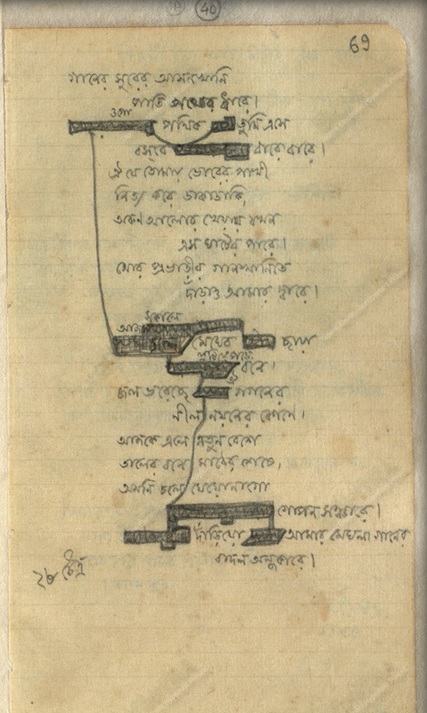 40
69
গানের সুরের আসনখানি
পাতি পথের ধারে।
ওগো পথিক তুমি এসে
বসবে বারে বারে।
ঐ যে তোমার ভোরের পাখী
নিত্য করে ডাকাডাকি,
অরুণ আলোর খেয়ায় যখন
এস ঘাটের পারে।
মোর প্রভাতীর গানখানিতে
দাঁড়াও আমার দ্বারে।
আজ সকালে
মেঘের ছায়া
লুটিয়ে পড়ে বনে।
জল ভরেছে গগনের
নীল নয়নের কোণে।
আজকে এলে নতুন বেশে
তালের বনে মাঠের শেষে,
অমনি চলে যেয়োনাকো
গোপন সঞ্চারে।
দাঁড়িয়ো আমার মেঘলা গানের
বাদল অন্ধকারে।
২৮ চৈত্র